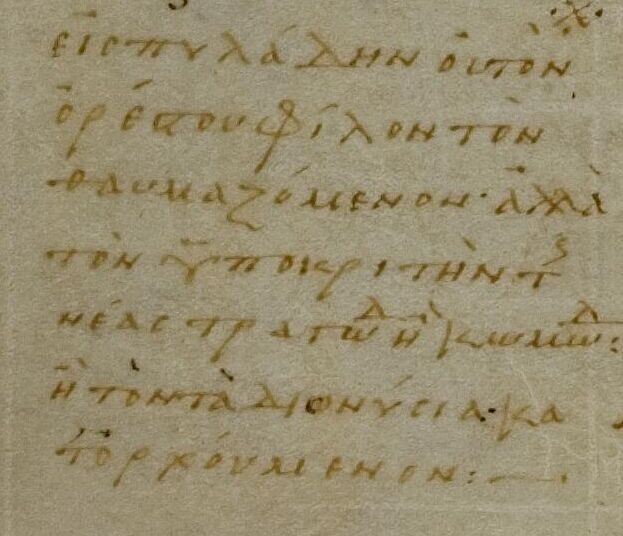 εἰς πυλάδην οὐ τὸν
ὀρέστου φίλον τὸν
θαυμαζόμενον· ἀλλὰ
τὸν ὑποκριτὴν τ
νέας τραγωδ ἢ κωμωδ:
ἢ τὸν τὰ διονύσια κα
τορχούμενον:—